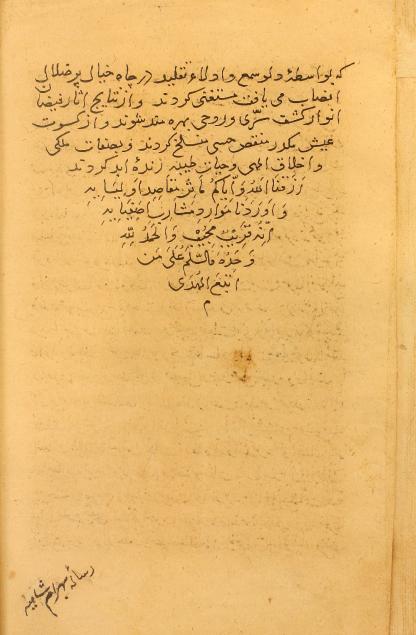 که بواسطهٔ دلو سمع و ادلاء تقلید در چاه خیال پر ضلال
انصباب می یافت مستغنی کردند و از نتایج آثار فیضان
انوار کشف سری و روحی بهره مند شوند و از کسوت
عیش مکدر منتقص حسی منسلخ کردند و بصفات ملکی
و اخلاق الهی و حیات طیبه زندهٔ ابد کردند
رَزَقَنَا اللهُ وَاِیَّاکُم مَقَاصِد اَولِیَایِهِ
وَ اَورَدَنَا مَوَارِد مَشَارِب اَصفِیَایِهِ
اِنَّهُ قَرِیبٌ مُجِیبٌ وَ الحَمدُ لِلّهِ
وَحدَهُ وَالسَّلَمُ عَلَی مَن
اتَّبَعَ الهُدَی
م
رسالهٔ بهرام شاهیه